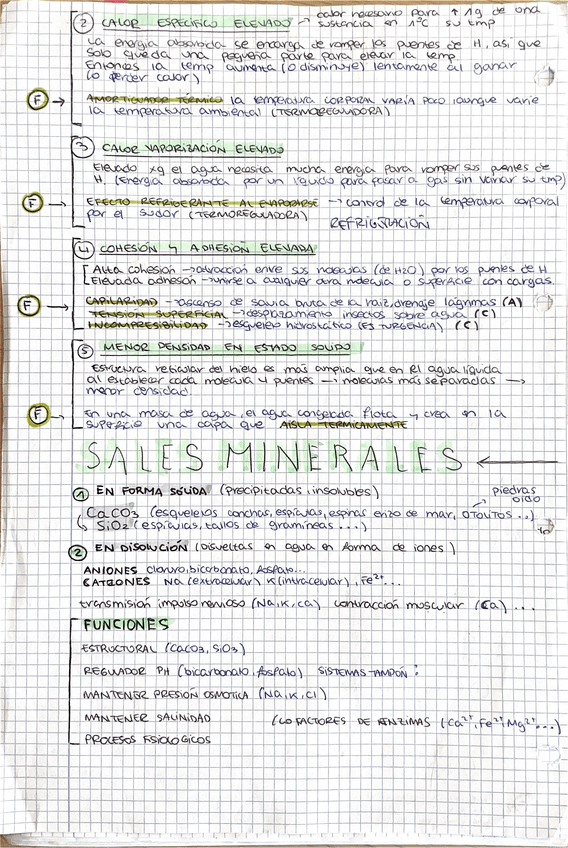 ② CALOR ESPECÍFICO ELEVADO → calor necesario para ↑ 1g de una
sustancia en 1ºC su tmp
La energía absorbida se encarga de romper los puentes de H, así que
solo queda una pequeña parte para elevar la temp
Entonces la temp aumenta (o disminuye) lentamente al ganar
(o perder calor)
F → AMORTIGUADOR TÉRMICO la temperatura CORPORAL VARÍA POCO aunque varíe
la temperatura ambiental (TERMOREGULADORA)
③ CALOR VAPORIZACIÓN ELEVADO
Elevado xq el agua necesita mucha energía para romper sus puentes de
H. (Energía absorbida por un líquido para pasar a gas sin variar su tmp)
F → EFECTO REFRIGERANTE AL EVAPORARSE → control de la temperatura corporal
por el sudor (TERMOREGULADORA)
REFRIGERACIÓN
④ COHESIÓN Y ADHESIÓN ELEVADA
Alta cohesión → atracción entre sus moléculas (de H2O) por los puentes de H
Elevada adhesión → unirse a cualquier otra molécula o superficie con cargas.
F → CAPILARIDAD → ascenso de savia bruta de la raíz, drenaje lágrimas (A)
TENSIÓN SUPERFICIAL → desplazamiento insectos sobre agua (C)
INCOMPRESIBILIDAD → esqueleto hidrostático (ES TURGENCIA) (C)
⑤ MENOR DENSIDAD EN ESTADO SOLIDO
Estructura reticular del hielo es más amplia que en el agua líquida
al establecer cada molécula 4 puentes → moléculas más separadas →
menor densidad
F → En una masa de agua, el agua congelada flota y crea en la
superficie una capa que AISLA TERMICAMENTE
SALES MINERALES ←
① EN FORMA SÓLIDA (precipitadas, insolubles)
piedras
oído
CaCO3 (esqueletos conchas, espículas, espinas erizo de mar, OTOLITOS...)
↳ SiO2 (espículas, tallos de gramíneas ...)
② EN DISOLUCIÓN (Disueltas en agua en forma de iones)
ANIONES cloruro, bicarbonato, fosfato...
CATIONES Na (extracelular) K (intracelular), Fe2+...
transmisión impulso nervioso (Na, K, Ca) contracción muscular (Ca) ...
FUNCIONES
ESTRUCTURAL (CaCO3, SiO3)
REGULADOR PH (bicarbonato, fosfato) SISTEMAS TAMPÓN
MANTENER PRESIÓN OSMOTICA (Na, K, Cl)
MANTENER SALINIDAD (COFACTORES DE ENZIMAS (Ca2+, Fe2+, Mg2+...)
PROCESOS FISIOLOGICOS